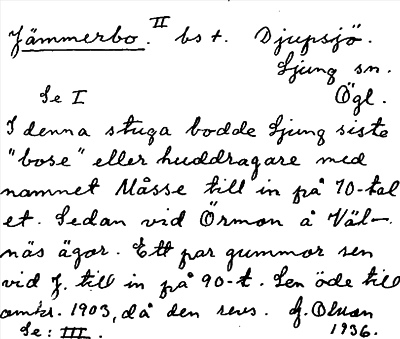 Jämmerbo. II bst. Djupsjö.
Ljung sn.
Se I Ögl.
I denna stuga bodde Ljung siste
"bose" eller huddragare med
namnet Måsse till in på 70-tal
et. Sedan vid Örmon å Väl-
näs ägor. Ett par gummor sen
vid J. till in på 90-t. Sen öde till
omkr. 1903, då den revs. G. Olsson
Se: III. 1936.